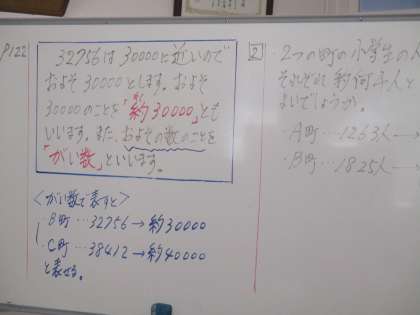 P122
32756は30000に近いので
およそ30000とします。およそ
30000のことを「約30000」とも
いいます。また、およその数のことを
「がい数」といいます。
<がい数で表すと>
B町…32756→約30000
C町…38412→約40000
と表せる。
2
・2つの町の小学生の人
それぞれ約何千人と
よいでしょうか。
・A町…1263人→
・B町…1825人→